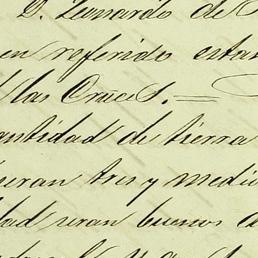 D. Leonardo de
en referido estas
las Cruces. =
antidad de tierra
ueran tres y medio
dad seran buenos